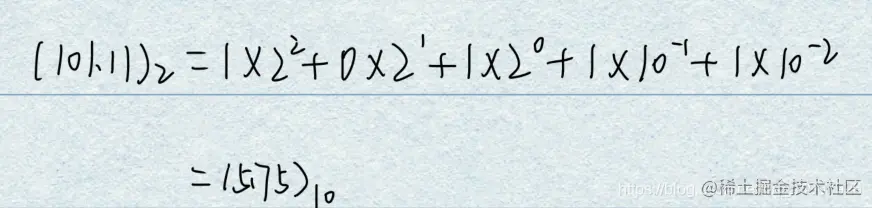 (101.11)₂ = 1×2² + 0×2¹ + 1×2⁰ + 1×10⁻¹ + 1×10⁻²
= (5.75)₁₀
https://blog.
@稀土掘金技术社区